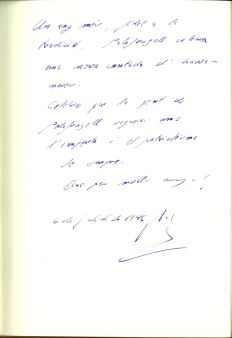 Un any més, fidel a la
tradició, Palafrugell celebra
una nova cantada d'havaneres.
Celebro que la gent de
Palafrugell segueixi amb
l'empenta i el patriotisme
de sempre.
Que per molts anys!
6 de juliol de 1996